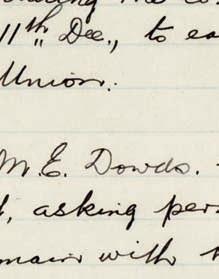 11th Dec., to ea
Union.
M. E. Dowds.
, asking per
main with